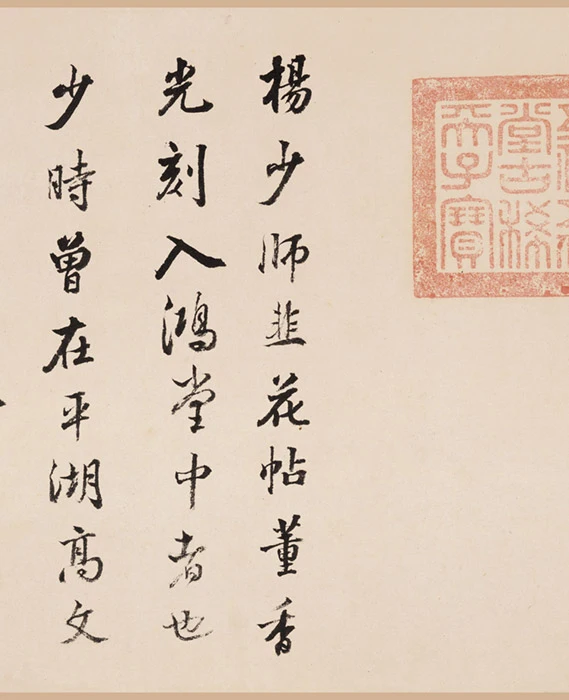 堂古稀
天子寶
楊少師韭花帖董香
光刻入鴻堂中者也
少時曾在平湖高文